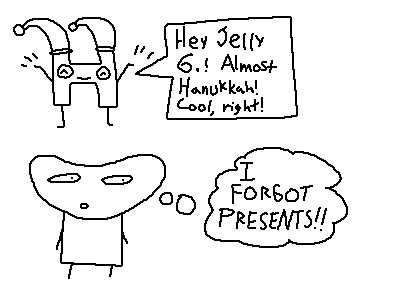 Hey Jelly
G.! Almost
Hanukkah!
Cool, right!
I
FORGOT
PRESENTS!!